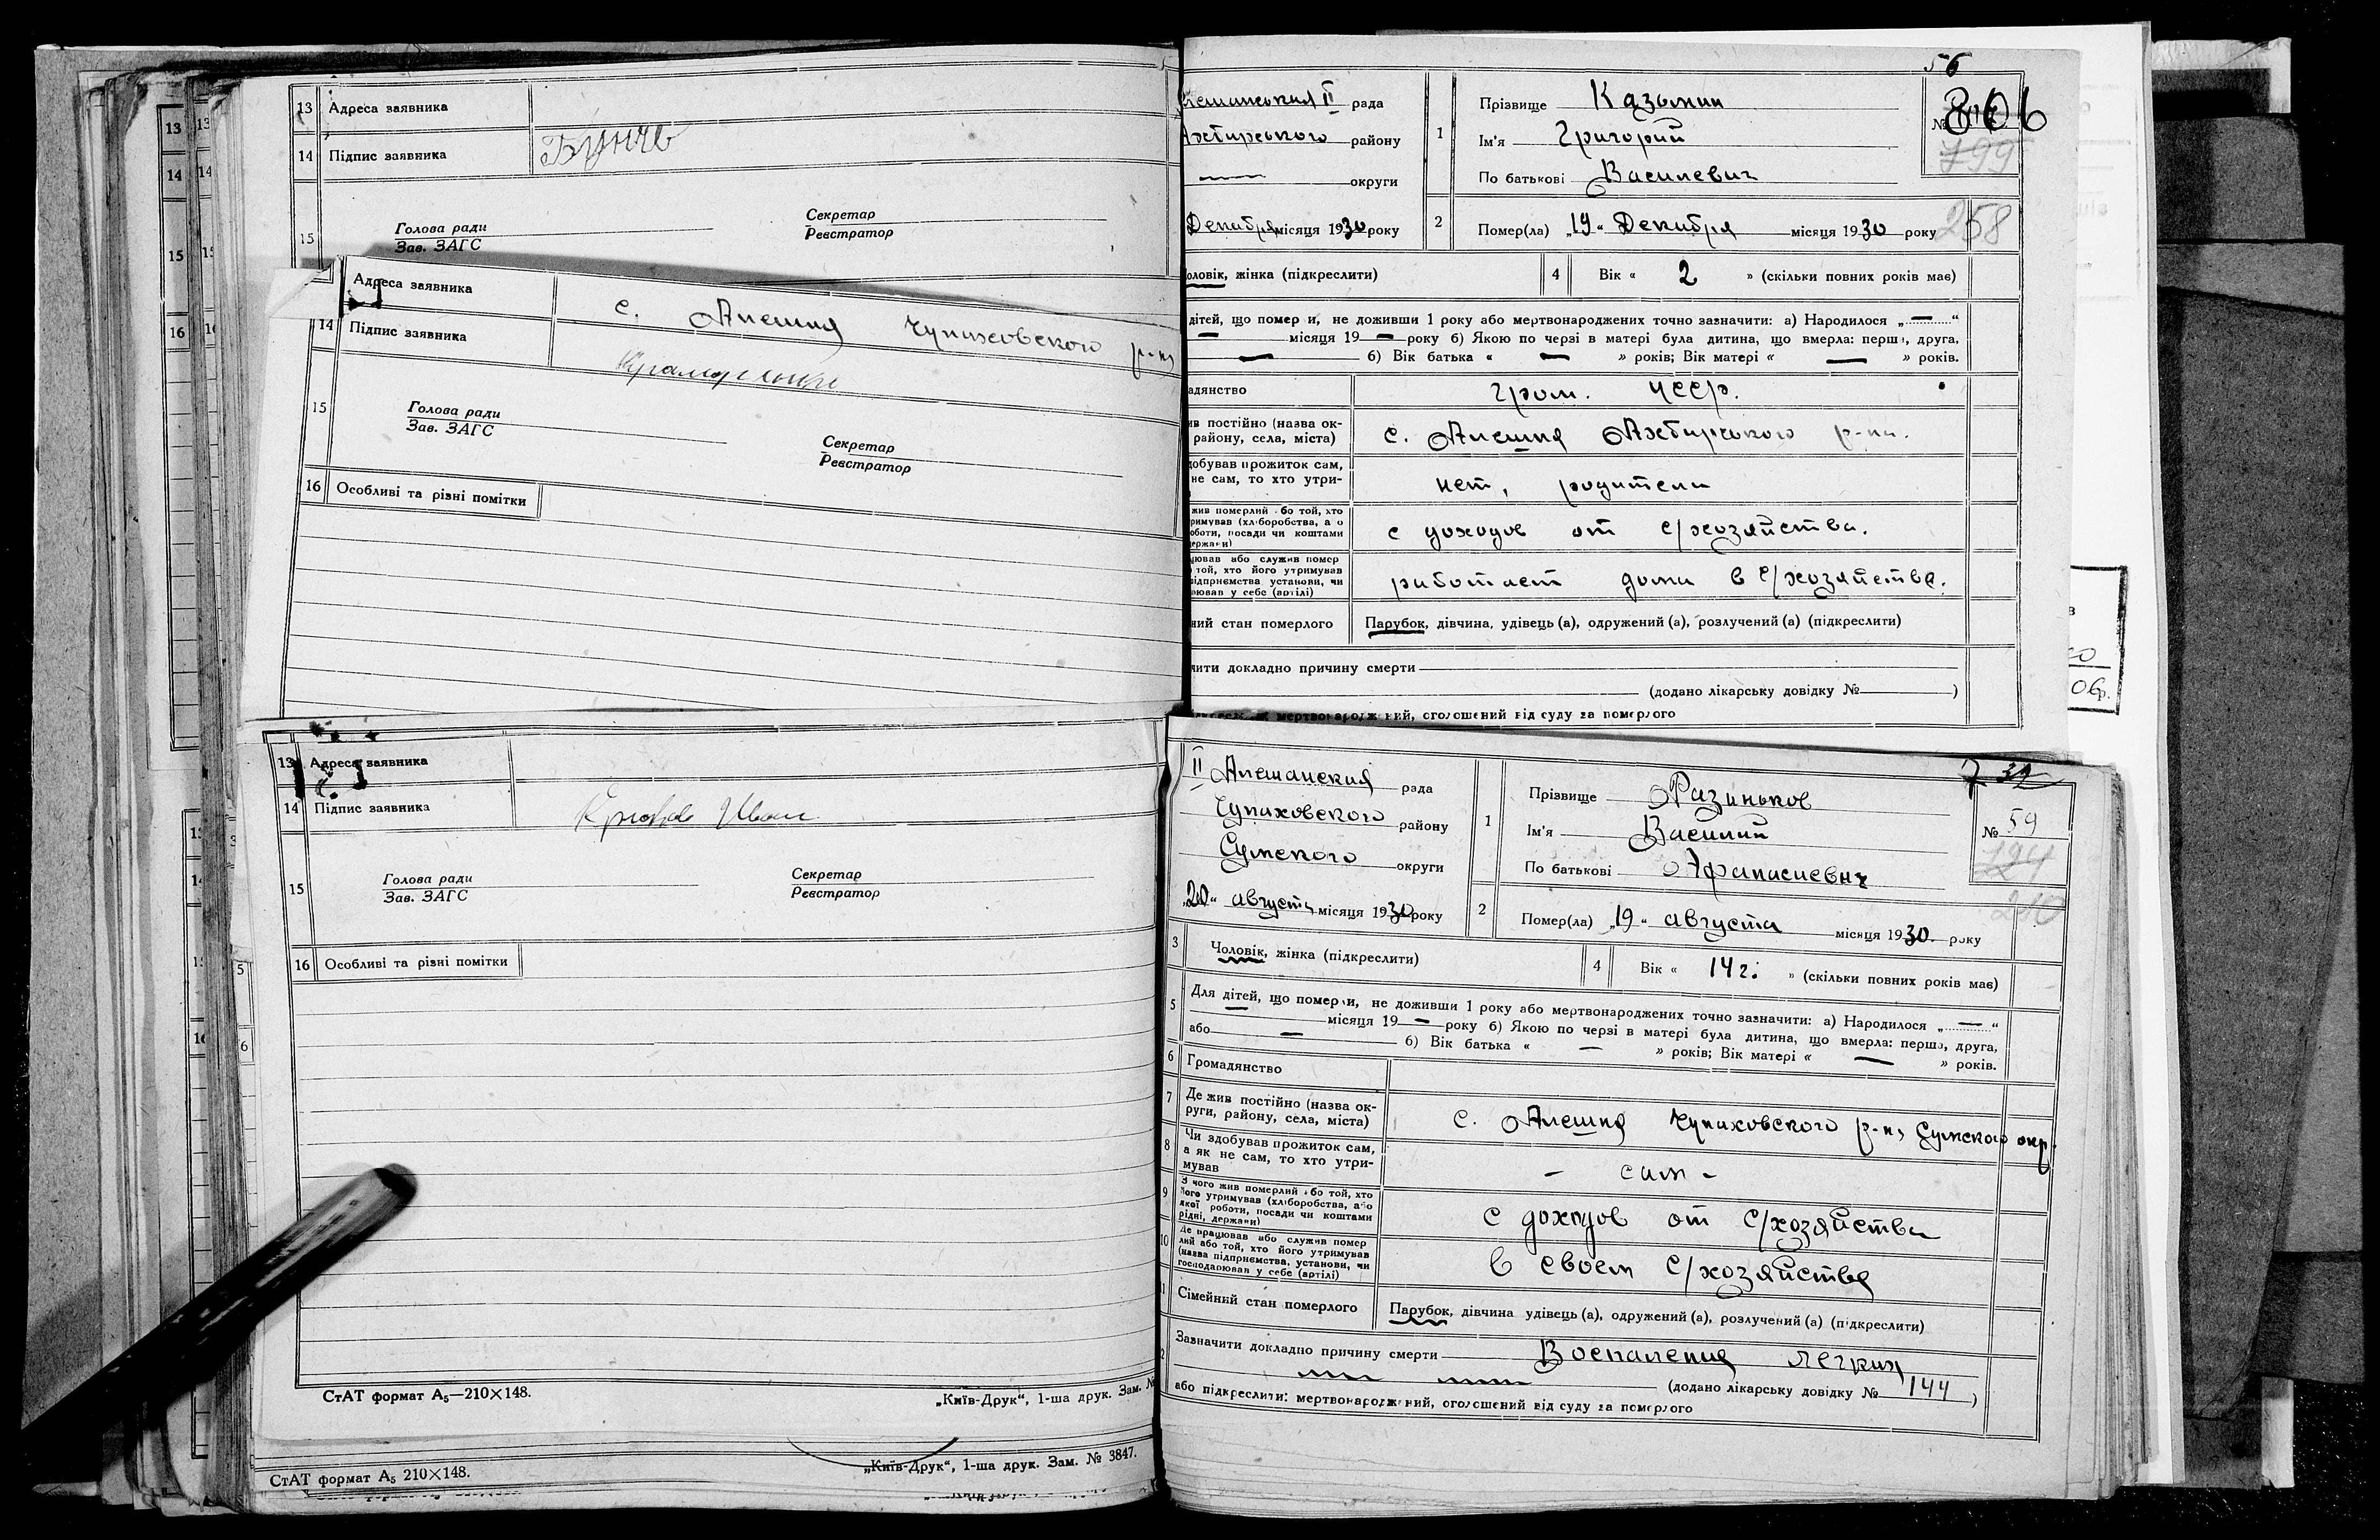 13 Адреса заявника
14 Підпис заявника
15
Голова ради
Зав. ЗАГС
Секретар
Реєстратор
Адреса заявника
с. Алешня Чупаховского р-на
14 Підпис заявника
15
Голова ради
Зав. ЗАГС
Секретар
Реєстратор
16 Особливі та різні помітки
13 Адреса заявника
14 Підпис заявника
Іван
15
Голова ради
Зав. ЗАГС
Секретар
Реєстратор
16 Особливі та різні помітки
СтАТ формат А₅—210×148.
„Київ-Друк“, 1-ша друк. Зам. №
СтАТ формат А₅ 210×148.
„Київ-Друк“, 1-ша друк. Зам. № 3847.
56
№ 806
799
258
рада
Ахтирського району
округи
Декабря місяця 1930 року
1
Прізвище Казьмин
Ім'я Григорий
По батькові Василевич
2
Помер(ла) „19“ Декабря місяця 1930 року
оловік, жінка (підкреслити)
4 Вік « 2 » (скільки повних років має)
дітей, що помер и, не доживши 1 року або мертвонароджених точно зазначити: а) Народилося „ — “
— місяця 19 — року б) Якою по черзі в матері була дитина, що вмерла: перша, друга,
— б) Вік батька « — » років; Вік матері « — » років.
адянство
гром. УССР.
ив постійно (назва ок-
району, села, міста)
с. Алешня Ахтирського р-на.
добував прожиток сам,
не сам, то хто утри-
нет, родители
жив померлий або той, хто
римував (хліборобства, або
оботи, посади чи коштами
ержави)
с доходов от с/хозяйства.
цював або служив помер
той, хто його утримував
підприємства установи, чи
рював у себе (артілі)
работает дома в с/хозяйстве.
ний стан померлого
Парубок, дівчина, удівець (а), одружений (а), розлучений (а) (підкреслити)
чити докладно причину смерти
(додано лікарську довідку № )
мертвонароджений, оголошений від суду за померлого
№ 59
724
210
II Алешанская рада
Чупаховского району
Сумского округи
„20“ августа місяця 1930 року
1
Прізвище Разиньков
Ім'я Василий
По батькові Афанасиевич
2
Помер(ла) „19“ августа місяця 1930. року
3 Чоловік, жінка (підкреслити)
4 Вік « 14 г. » (скільки повних років має)
5 Для дітей, що померли, не доживши 1 року або мертвонароджених точно зазначити: а) Народилося „ — “
— місяця 19 — року б) Якою по черзі в матері була дитина, що вмерла: перша, друга,
або — б) Вік батька « — » років; Вік матері « — » років.
6 Громадянство
7 Де жив постійно (назва ок-
руги, району, села, міста)
с. Алешня Чупаховского р-на Сумского окр.
8 Чи здобував прожиток сам,
а як не сам, то хто утри-
мував
- сам -
9 З чого жив померлий або той, хто
його утримував (хліборобства, або
якої роботи, посади чи коштами
рідні, держави)
с доходов от с/хозяйства
10 Де працював або служив помер
лий або той, хто його утримував
(назва підприємства, установи, чи
господарював у себе (артілі)
в своем с/хозяйстве
Сімейний стан померлого
Парубок, дівчина удівець (а), одружений (а), розлучений (а) (підкреслити)
Зазначити докладно причину смерти Воспаления легких
(додано лікарську довідку № 144 )
або підкреслити: мертвонароджений, оголошений від суду за померлого